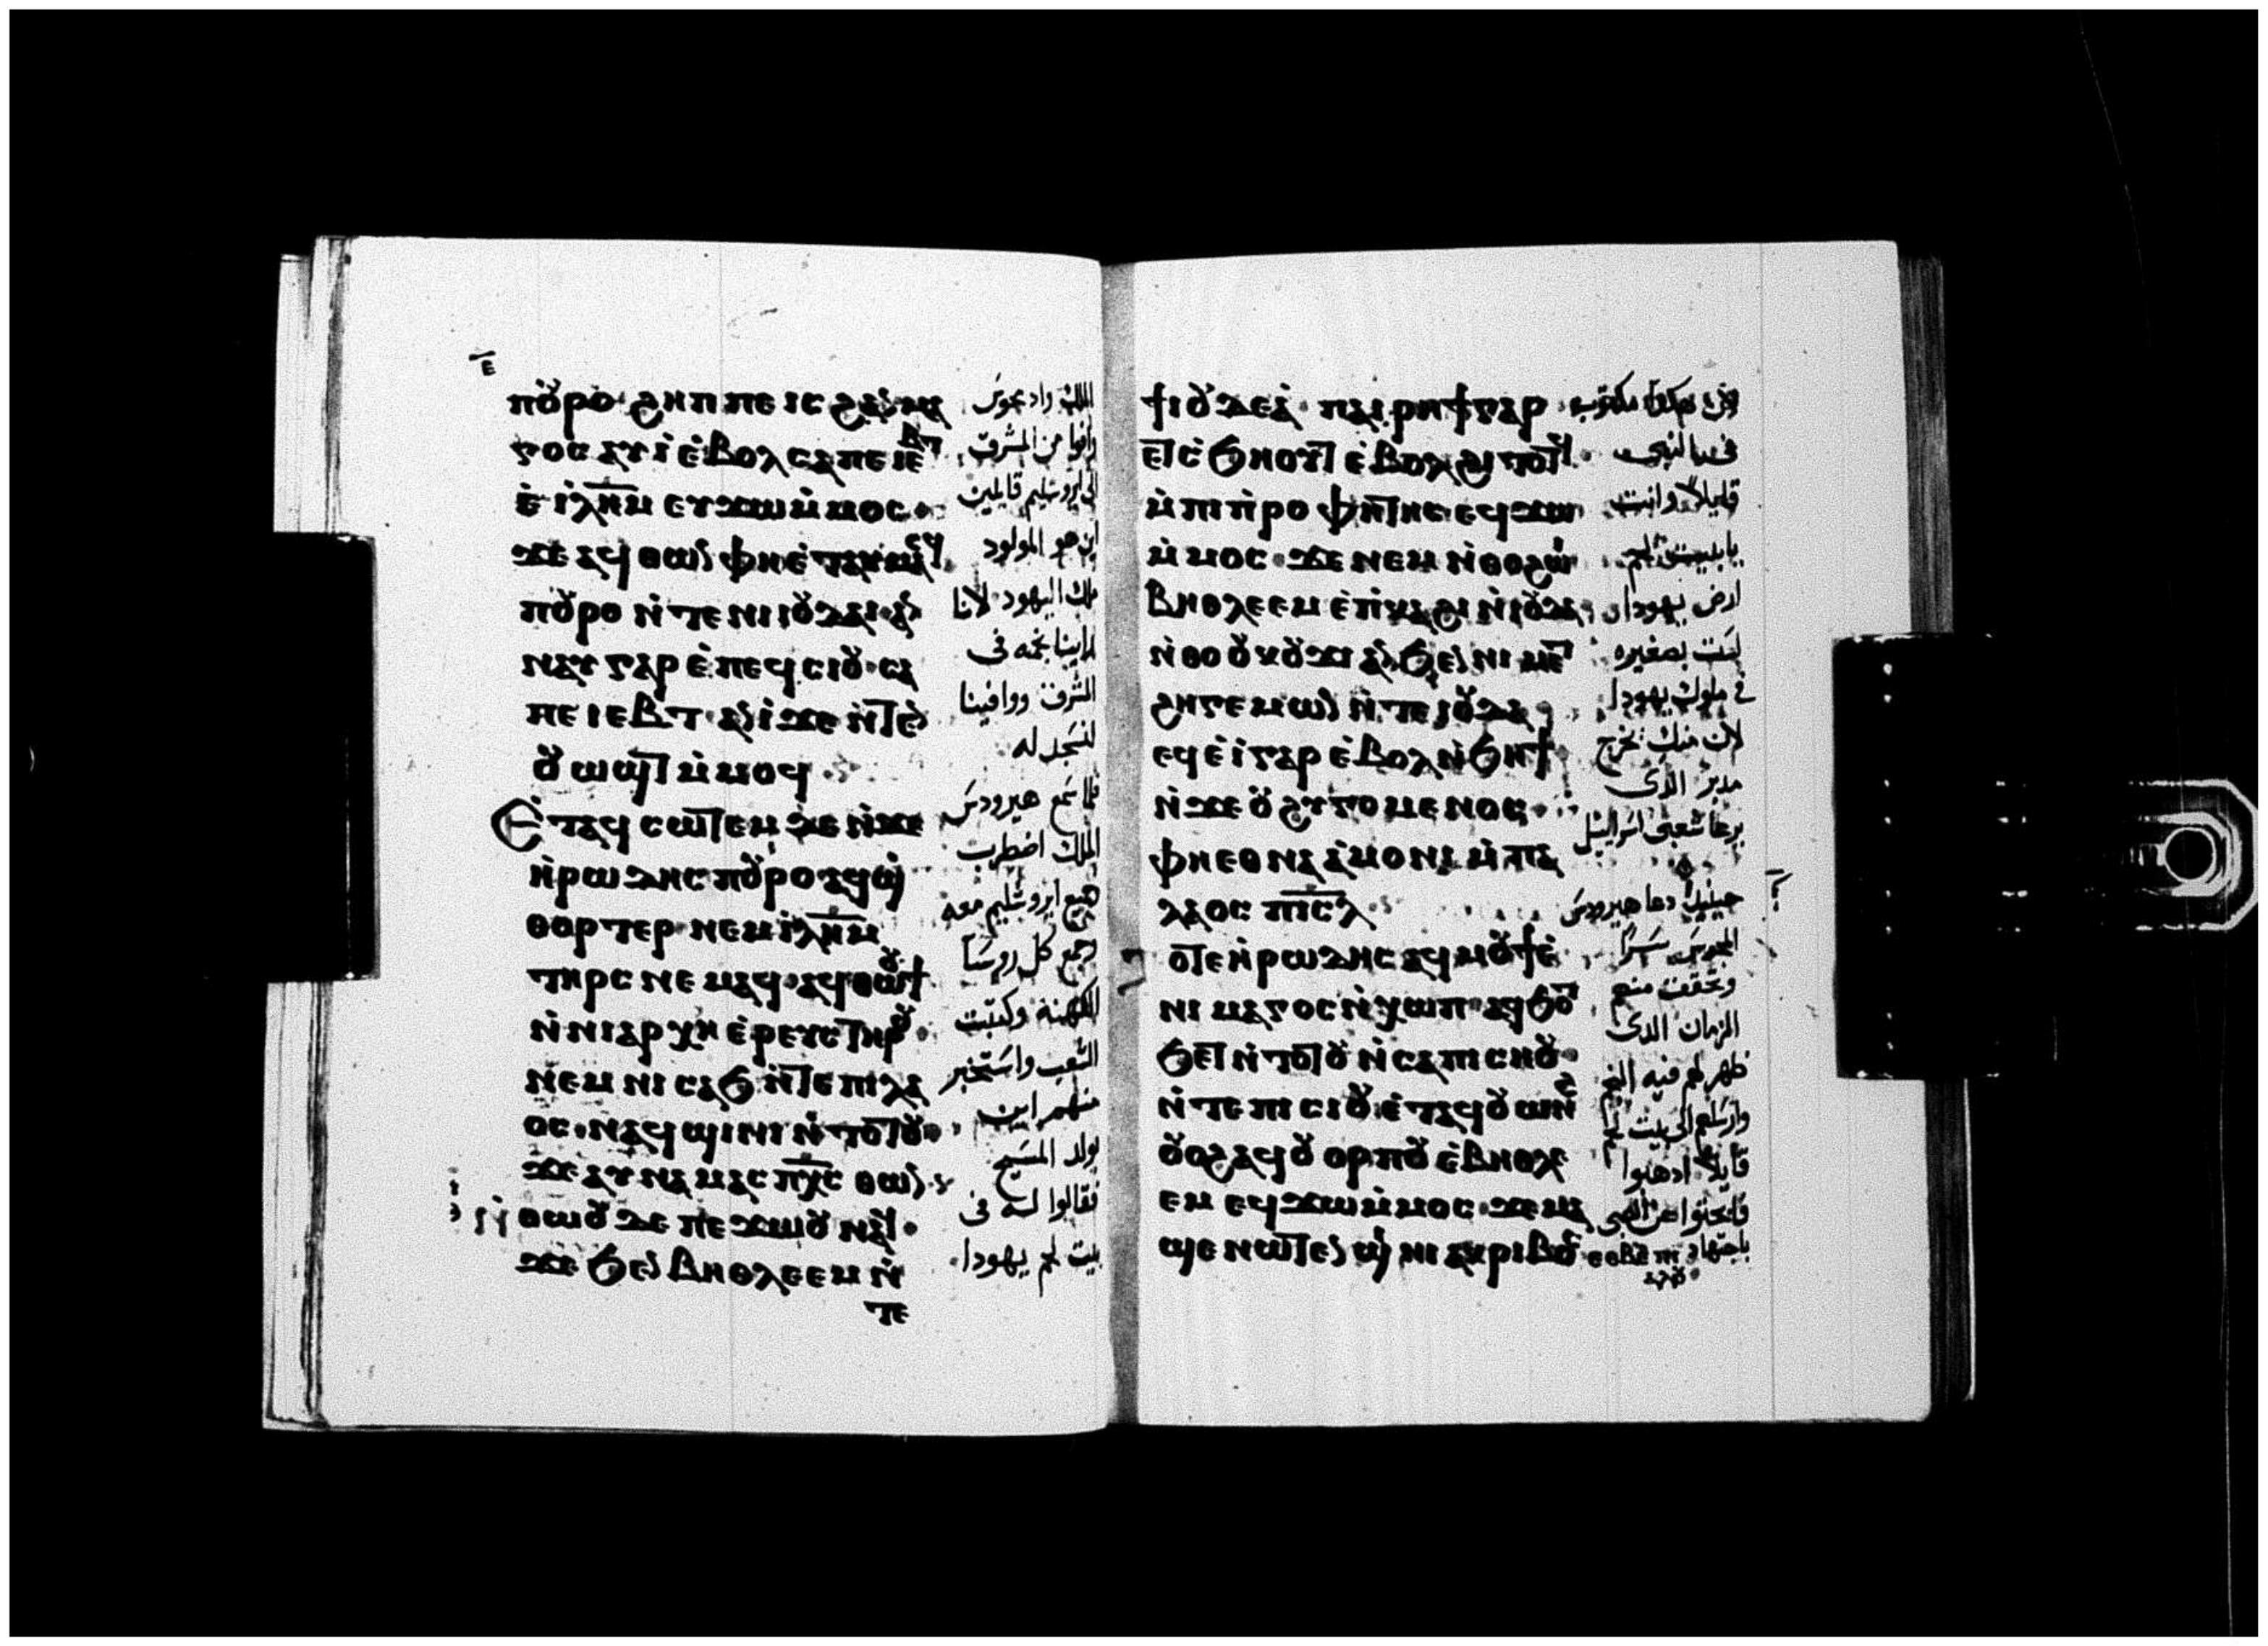 ⲉ̅
ⲡⲟⲩⲣⲟ ϩⲏⲡⲡⲉ ⲓⲥ ϩⲁⲛⲙⲁ
ⲅⲟⲥ ⲁⲩⲓ̀ ⲉ̀ⲃⲟⲗ ⲥⲁⲡⲉⲓⲉⲃⲧ
ⲉ̀ⲓ̀ⲗ̅ⲏ̅ⲙ ⲉⲩϫⲱ ⲙ̀ⲙⲟⲥ
ϫⲉ ⲁϥⲑⲱⲛ ⲫⲏⲉ̀ⲧⲁⲩⲙⲁⲥϥ
ⲡⲟⲩⲣⲟ ⲛ̀ⲧⲉ ⲛⲓⲓⲟⲩⲇⲁⲓ ⲁⲛ
ⲛⲁⲩ ⲅⲁⲣ ⲉ̀ⲡⲉϥⲥⲓⲟⲩ ⲥⲁ
ⲡⲉⲓⲉⲃⲧ ⲁⲛⲓ̀ ϫⲉ ⲛ̀ⲧⲉⲛ
ⲟⲩⲱϣⲧ ⲙ̀ⲙⲟϥ
Ⲉ̀ⲧⲁϥⲥⲱⲧⲉⲙ ⲇⲉ ⲛ̀ϫⲉ
ⲏ̀ⲣⲱⲇⲏⲥ ⲡⲟⲩⲣⲟ ⲁϥϣ̀
ⲑⲟⲣⲧⲉⲣ ⲛⲉⲙ ⲓ̀ⲗ̅ⲏ̅ⲙ
ⲧⲏⲣⲥ ⲛⲉⲙⲁϥ ⲁϥⲑⲱⲟⲩϯ
ⲛ̀ⲛⲓⲁⲣⲭⲏⲉ̀ⲣⲉⲩⲥ ⲧⲏⲣⲟⲩ
ⲛⲉⲙ ⲛⲓⲥⲁϧ ⲛ̀ⲧⲉ ⲡⲓⲗⲁ
ⲟⲥ ⲛⲁϥϣⲓⲛⲓ ⲛ̀ⲧⲟⲧⲟⲩ
ϫⲉ ⲁⲩⲛⲁⲙⲁⲥ ⲡ̅ⲭ̅ⲥ ⲑⲱⲛ
ⲑⲱⲟⲩ ⲇⲉ ⲡⲉϫⲱⲟⲩ ⲛⲁϥ
ϫⲉ ϧⲉⲛ ⲃⲏⲑⲗⲉⲉⲙ ⲛ̀
ⲧⲉ
الملك واذ مجوس
وافوا من المشرق
الى ايروشليم قايلين
اين هو المولود
ملك اليهود لانا
راينا نجمه فى
المشرق ووافينا
لنسجد له
فلما سمع هيرودس
الملك اضطرب
وجميع ايروشليم معه
وجمع كل روسا
الكهنه وكتبت
الشعب واستخبر
منهم اين
يولد المسيح
فقالوا له فى
بيت لحم يهودا
ϯⲓⲟⲩⲇⲉⲁ̀ ⲡⲁⲓⲣⲏϯ ⲅⲁⲣ
ⲉⲧⲥ̀ϧⲏⲟⲩⲧ ⲉ̀ⲃⲟⲗ ϩⲓⲧⲟⲧϥ
ⲙ̀ⲡⲓⲡ̀ⲣⲟⲫⲏⲧⲏⲥ ⲉϥϫⲱ
ⲙ̀ⲙⲟⲥ ϫⲉ ⲛⲉⲙ ⲛ̀ⲑⲟ ϩⲱⲓ
ⲃⲏⲑⲗⲉⲉⲙ ⲉ̀ⲡ̀ⲕⲁϩⲓ ⲛ̀ⲓⲟⲩⲇⲁ
ⲛ̀ⲑⲟ ⲟⲩⲕⲟⲩϫⲓ ⲁⲛ ϧⲉⲛ ⲛⲓⲙⲉⲧ
ϩⲏⲅⲉⲙⲱⲛ ⲛ̀ⲧⲉ ⲓⲟⲩⲇⲁ
ⲉϥⲉ̀ⲓ̀ ⲅⲁⲣ ⲉ̀ⲃⲟⲗ ⲛ̀ϧⲏϯ
ⲛ̀ϫⲉ ⲟⲩϩⲩⲅⲟⲙⲉⲛⲟⲥ
ⲫⲏⲉⲑⲛⲁⲁ̀ⲙⲟⲛⲓ ⲙ̀ⲡⲁ
ⲗⲁⲟⲥ ⲡ̅ⲓ̅ⲥ̅ⲗ
ⲟⲧⲉ ⲏ̀ⲣⲱⲇⲏⲥ ⲁϥⲙⲟⲩϯ ⲉ̀
ⲛⲓⲙⲁⲅⲟⲥ ⲛ̀ⲭⲱⲡ ⲁϥϧⲟⲧ
ϧⲉⲧ ⲛ̀ⲧⲟⲧⲟⲩ ⲛ̀ⲥⲁ ⲡⲓⲥⲏⲟⲩ
ⲛ̀ⲧⲉ ⲡⲓⲥⲓⲟⲩ ⲉ̀ⲧⲁϥⲟⲩⲱⲛϩ
ⲟⲩⲟϩ ⲁϥⲟⲩⲟⲣⲡⲟⲩ ⲉ̀ⲃⲏⲑⲗⲉ
ⲉⲙ ⲉϥϫⲱ ⲙ̀ⲙⲟⲥ ϫⲉ ⲙⲁ
ϣⲉ ⲛⲱⲧⲉⲛ ϣⲓⲛⲓ ⲁⲕⲣⲓⲃⲱⲥ ⲉⲑⲃⲉ ⲡⲓ
ⲁⲗⲟⲩ
هكذا مكتوب
فى النبى
قايلا وانت
يابيت لحم
ارض يهودا
لست بصغيره
فى ملوك يهودا
لان منك يخرج
مدبر الذى
يرعا شعبى اسراييل
حينيذ دعا هيرودس
المجوس سرا
وتحقق منهم
الزمان الذى
ظهر لهم فيه النجم
وارسلهم الى بيت لحم
قايلا اذهبوا
فابحثوا عن الصبى
باجتهاد